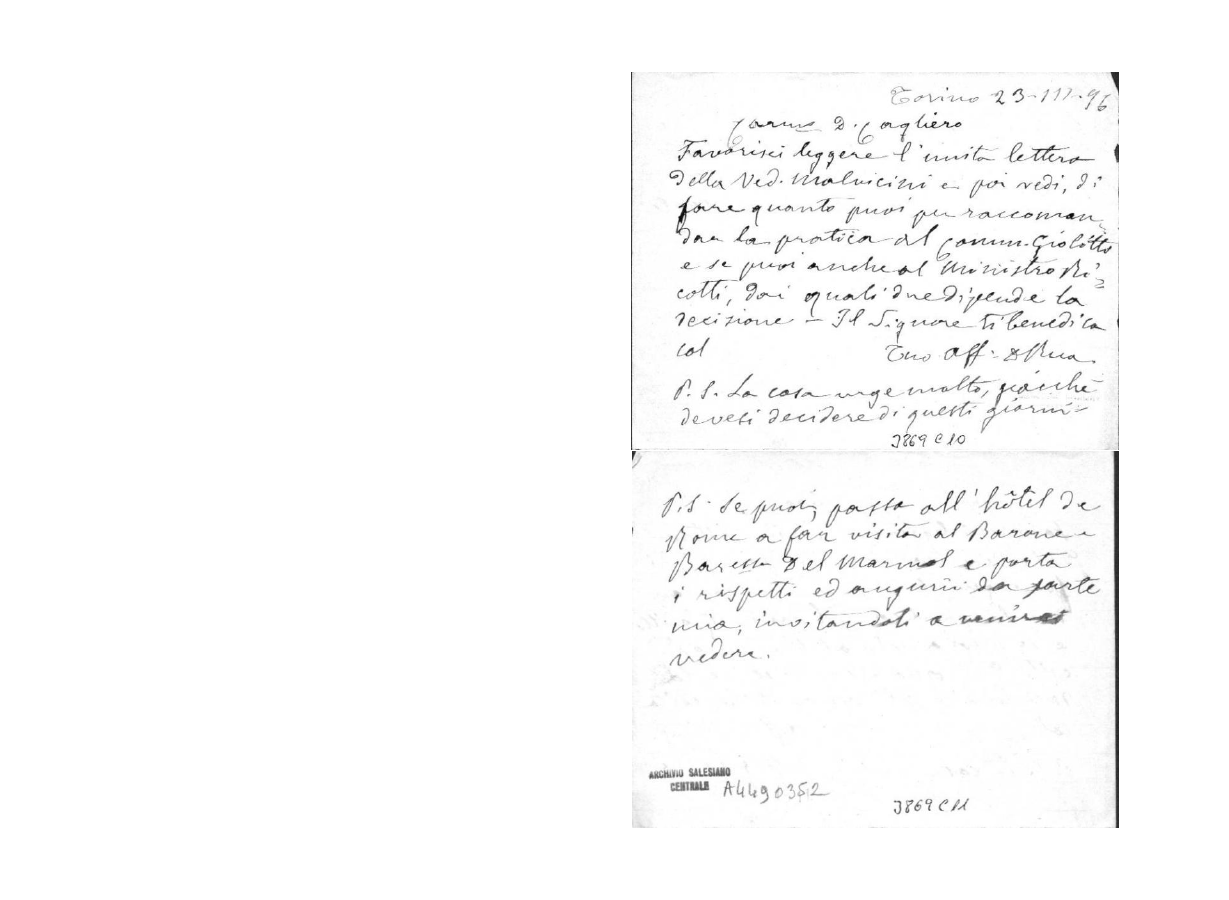 Torino 23-III-96
Carmo D. Cagliero
Favorisci leggere l'unita lettera
della Ved. Malvicini e poi vedi, di
fare quanto puoi per raccoman
dar la pratica al Comm. Giolitto
e se puoi anche al Ministro Ri=
cotti, dai quali due dipende la
decisione – Il Signore ti benedica
col Tuo aff. D Rua
P.S. La cosa urge molto, giacchè
devesi decidere di questi giorni-
J869 C10
P.S. Se puoi, passa all'hôtel de
Rome a far visita al Barone e
Baressa Del Marmol e porta
i rispetti ed augurii da parte
mia, invitandoli a
vedere.
ARCHIVIO SALESIANO
CENTRALE A4490352
J869 C11